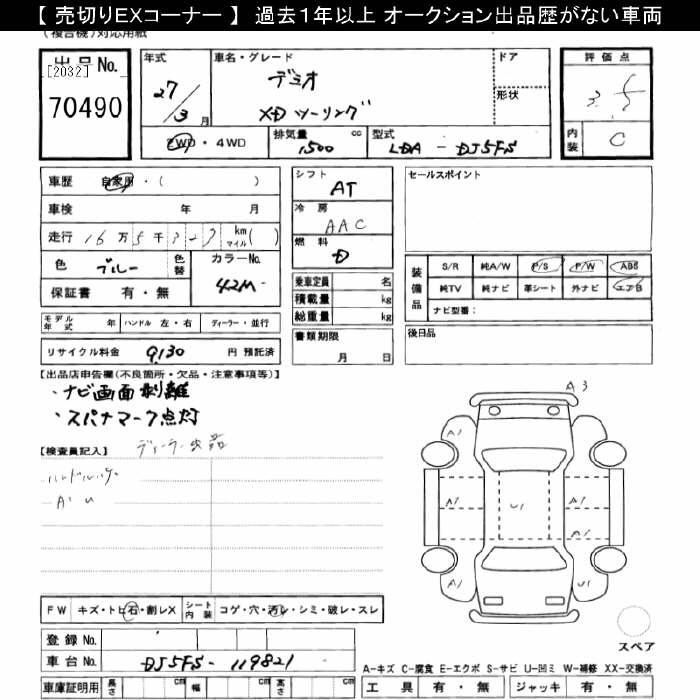 【 売切りEXコーナー 】 過去1年以上 オークション出品歴がない車両
(複合機)対応用紙
出品No.
[2032]
70490
年式
27/3月
車名・グレード
デミオ
XDツーリング
ドア
形状
評価点
3.5
内装 C
2WD・4WD
排気量 1,500 cc
型式 LDA - DJ5FS
車歴 自家用・( )
車検 年 月
走行 16万5千 km マイル( )
色 ブルー 色替 カラーNo. 42M
保証書 有・無
モデル年式 年 ハンドル 左・右 ディーラー・並行
リサイクル料金 9,130 円 預託済
シフト
AT
冷房
AAC
燃料
D
乗車定員 名
積載量 kg
総重量 kg
書類期限
月 日
セールスポイント
装備品
S/R 純A/W P/S P/W ABS
純TV 純ナビ 革シート 外ナビ エアB
ナビ型番:
後日品
【出品店申告欄(不良箇所・欠品・注意事項等)】
・ナビ画面剥離
・スパナマーク点灯
【検査員記入】
ディーラー出品
A1 U
A3
A1
A1 U1 A1
A1
A1 U1
FW キズ・トビ石・割レX シート内装 コゲ・穴・汚レ・シミ・破レ・スレ
登録 No.
車台 No. DJ5FS - 119821
車庫証明用 長さ cm 幅 cm 高さ cm
スペア
A-キズ C-腐食 E-エクボ S-サビ U-凹ミ W-補修 XX-交換済
工具 有・無 ジャッキ 有・無